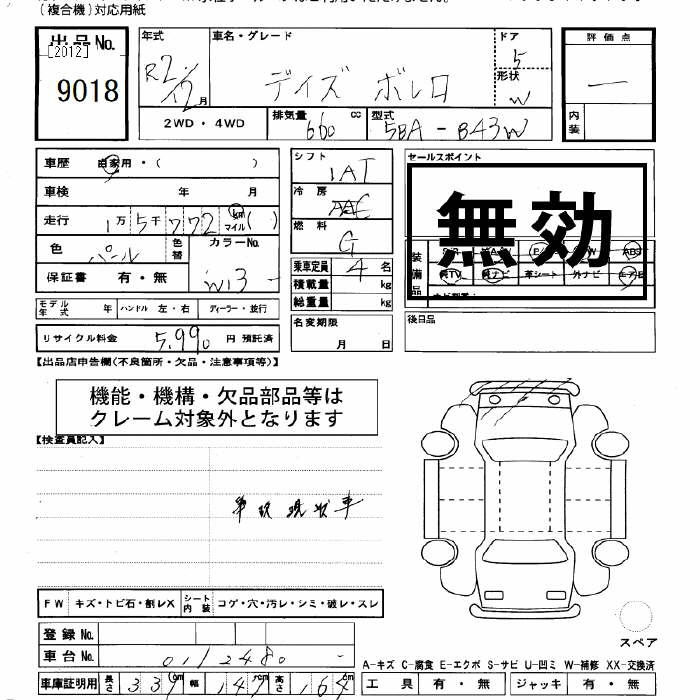 (複合機)対応用紙
出品No.
[2012]
9018
年式
R2/12月
車名・グレード
デイズ ボレロ
ドア
5
形状
W
評価点
一
内装
2WD・4WD
排気量
660 cc
型式
5BA-B43W
車歴 自家用・( )
車検 年 月
走行 1万5千772 km マイル( )
色 パール 色替 カラーNo. W13
保証書 有・無
モデル年式 年 ハンドル 左・右 ディーラー・並行
リサイクル料金 5,990 円 預託済
シフト
IAT
冷房
AAC
燃料
G
乗車定員 4 名
積載量 kg
総重量 kg
名変期限
月 日
セールスポイント
無効
装備品
純TV 純ナビ 革シート 外ナビ エアB
後日品
【出品店申告欄(不良箇所・欠品・注意事項等)】
機能・機構・欠品部品等は
クレーム対象外となります
【検査員記入】
現状車
FW キズ・トビ石・割レX シート内装 コゲ・穴・汚レ・シミ・破レ・スレ
登録No.
車台No. 0112480
車庫証明用 長さ 339cm 幅 147cm 高さ 164cm
スペア
A-キズ C-腐食 E-エクボ S-サビ U-凹ミ W-補修 XX-交換済
工具 有・無 ジャッキ 有・無